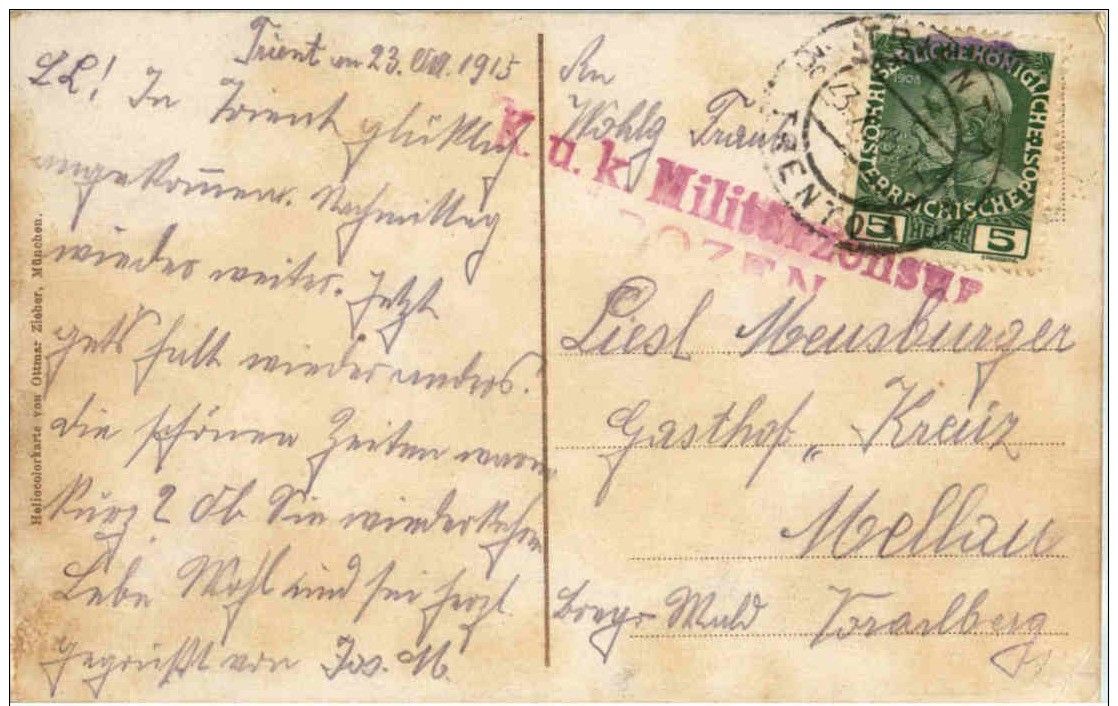 Trient am 23. Okt. 1915
LL! In Trient glücklich
angekommen. Nachmittag
wieder weiter. Jetzt
gets halt wieder anders.
die schönen Zeiten waren
kurz? Ob Sie wiederkehren
Lebe Wohl und sei herzl.
gegrüßt von Jos. M.
Heliocolorkarte von Ottmar Zieher, München.
An
Wohlg Frau
Liesl Meusburger
Gasthof „Kreuz
Mellau
Bregz Wald Vorarlberg
K. u. k. Militärzensur
BOZEN
TRIENT
TRENTO
KAISERLICHE KÖNIGLICHE ÖSTERREICHISCHE POST
1908
5 HELLER 5